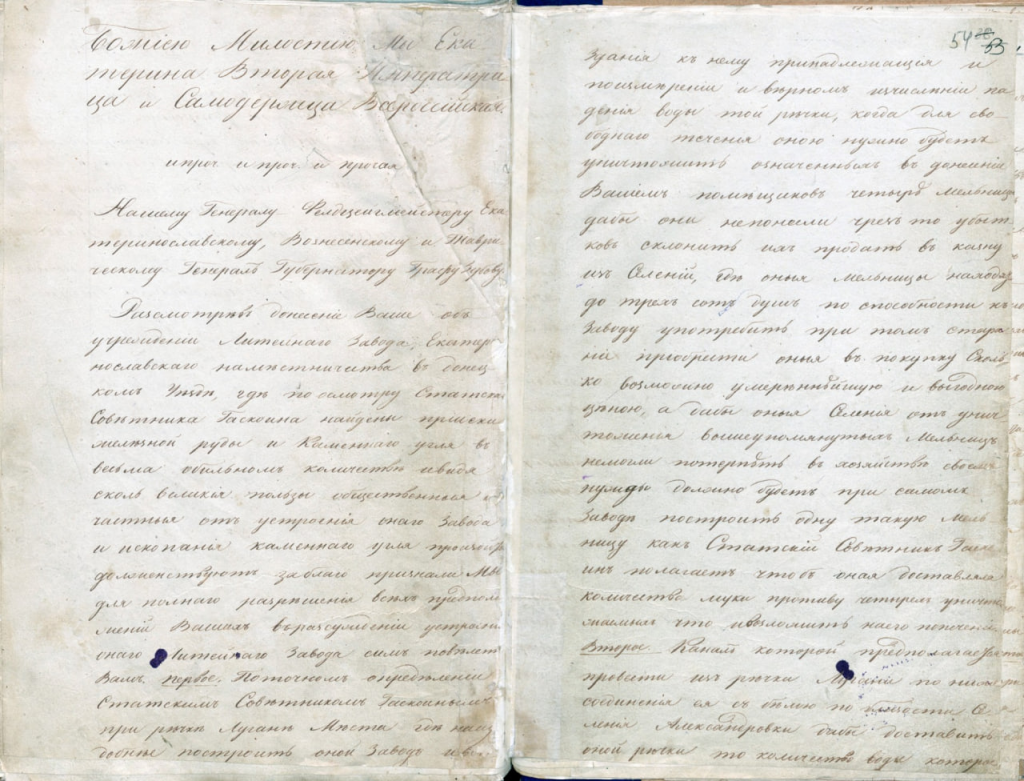 Божіею Милостію Мы Ека
терина Вторая Императри
ца и Самодержица Всероссійская
и проч и проч и прочая
Нашему Генералу Фелдцеигмейстеру Ека
теринославскому, Вознесенскому и Таври
ческому Генералъ Губернатору Графу Зубову
Разсмотрѣвъ донесеніе Ваше объ
учрежденіи Литейнаго Завода, Екатери
нославскаго намѣстничества въ донец
комъ Уездѣ, гдѣ по осмотру Статск
Совѣтника Гаскоина найдены прииски
желѣзной руды и Каменнаго угля въ
весьма обильномъ количествѣ и видя
сколь великія пользы общественныя и
частныя отъ устроенія онаго Завода
и ископанія каменнаго угля
долженствуютъ за благо признали Мы
для полнаго разрѣшенія всѣхъ предполо
женій Вашихъ въ разсужденіи устроени
онаго Литейнаго Завода симъ повѣлет
Вамъ. первое. По точномъ опредѣленіи
Статскимъ Совѣтникомъ Гаскоиномъ
при рѣчки Лугани Мѣста гдѣ наи
добнѣе построить оной Заводъ и все
54 53
зданія къ нему принадлежащія и
по измѣреніи и вѣрномъ изчисленіи па
денія воды той рѣчки, когда для сво
боднаго теченія оною нужно будетъ
уничтожить означенныхъ въ донесеніи
Вашемъ помѣщиковъ четыре мельницы
дабы они непонесли чрезъ то убыт
ковъ склонить ихъ продать въ казну
изъ Селеній, гдѣ оныя мельницы находя
до трехъ сотъ душъ по способности къ
Заводу употребить при томъ стара
ніе приобрѣсти оныя въ покупку Сколь
ко возможно умѣреннѣйшую и выгодною
цѣною, а дабы оныя Селенія отъ унич
тоженья вышеупомянутыхъ Мельницъ
немогли потерпѣть въ хозяйствѣ своемъ
нужды должно будетъ при самомъ
Заводѣ построить одну такую Мель
ницу какъ Статскій Совѣтникъ Гаско
инъ полагаетъ чтобъ оная доставляла
количество муки противу четырехъ уничто
жаемыхъ что и возложить на его попеченіе
Второе. Каналъ которой предполагается
провести изъ рѣчки по ниже
соединенія ея съ бѣлою по близости Се
ленія Александровки дабы доставить
оной рѣчки то количество воды которое